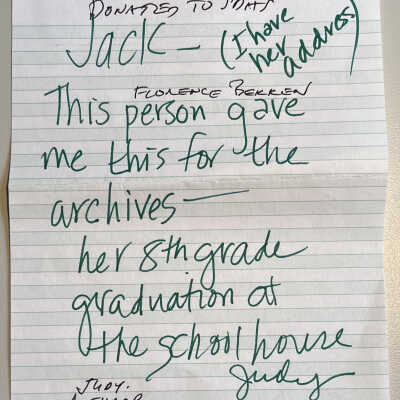 DONATED TO
Jack - (I have her address)
FLORENCE BERRIEN
This person gave
me this for the
archives —
her 8th grade
graduation at
the school house
Judy
JUDY.